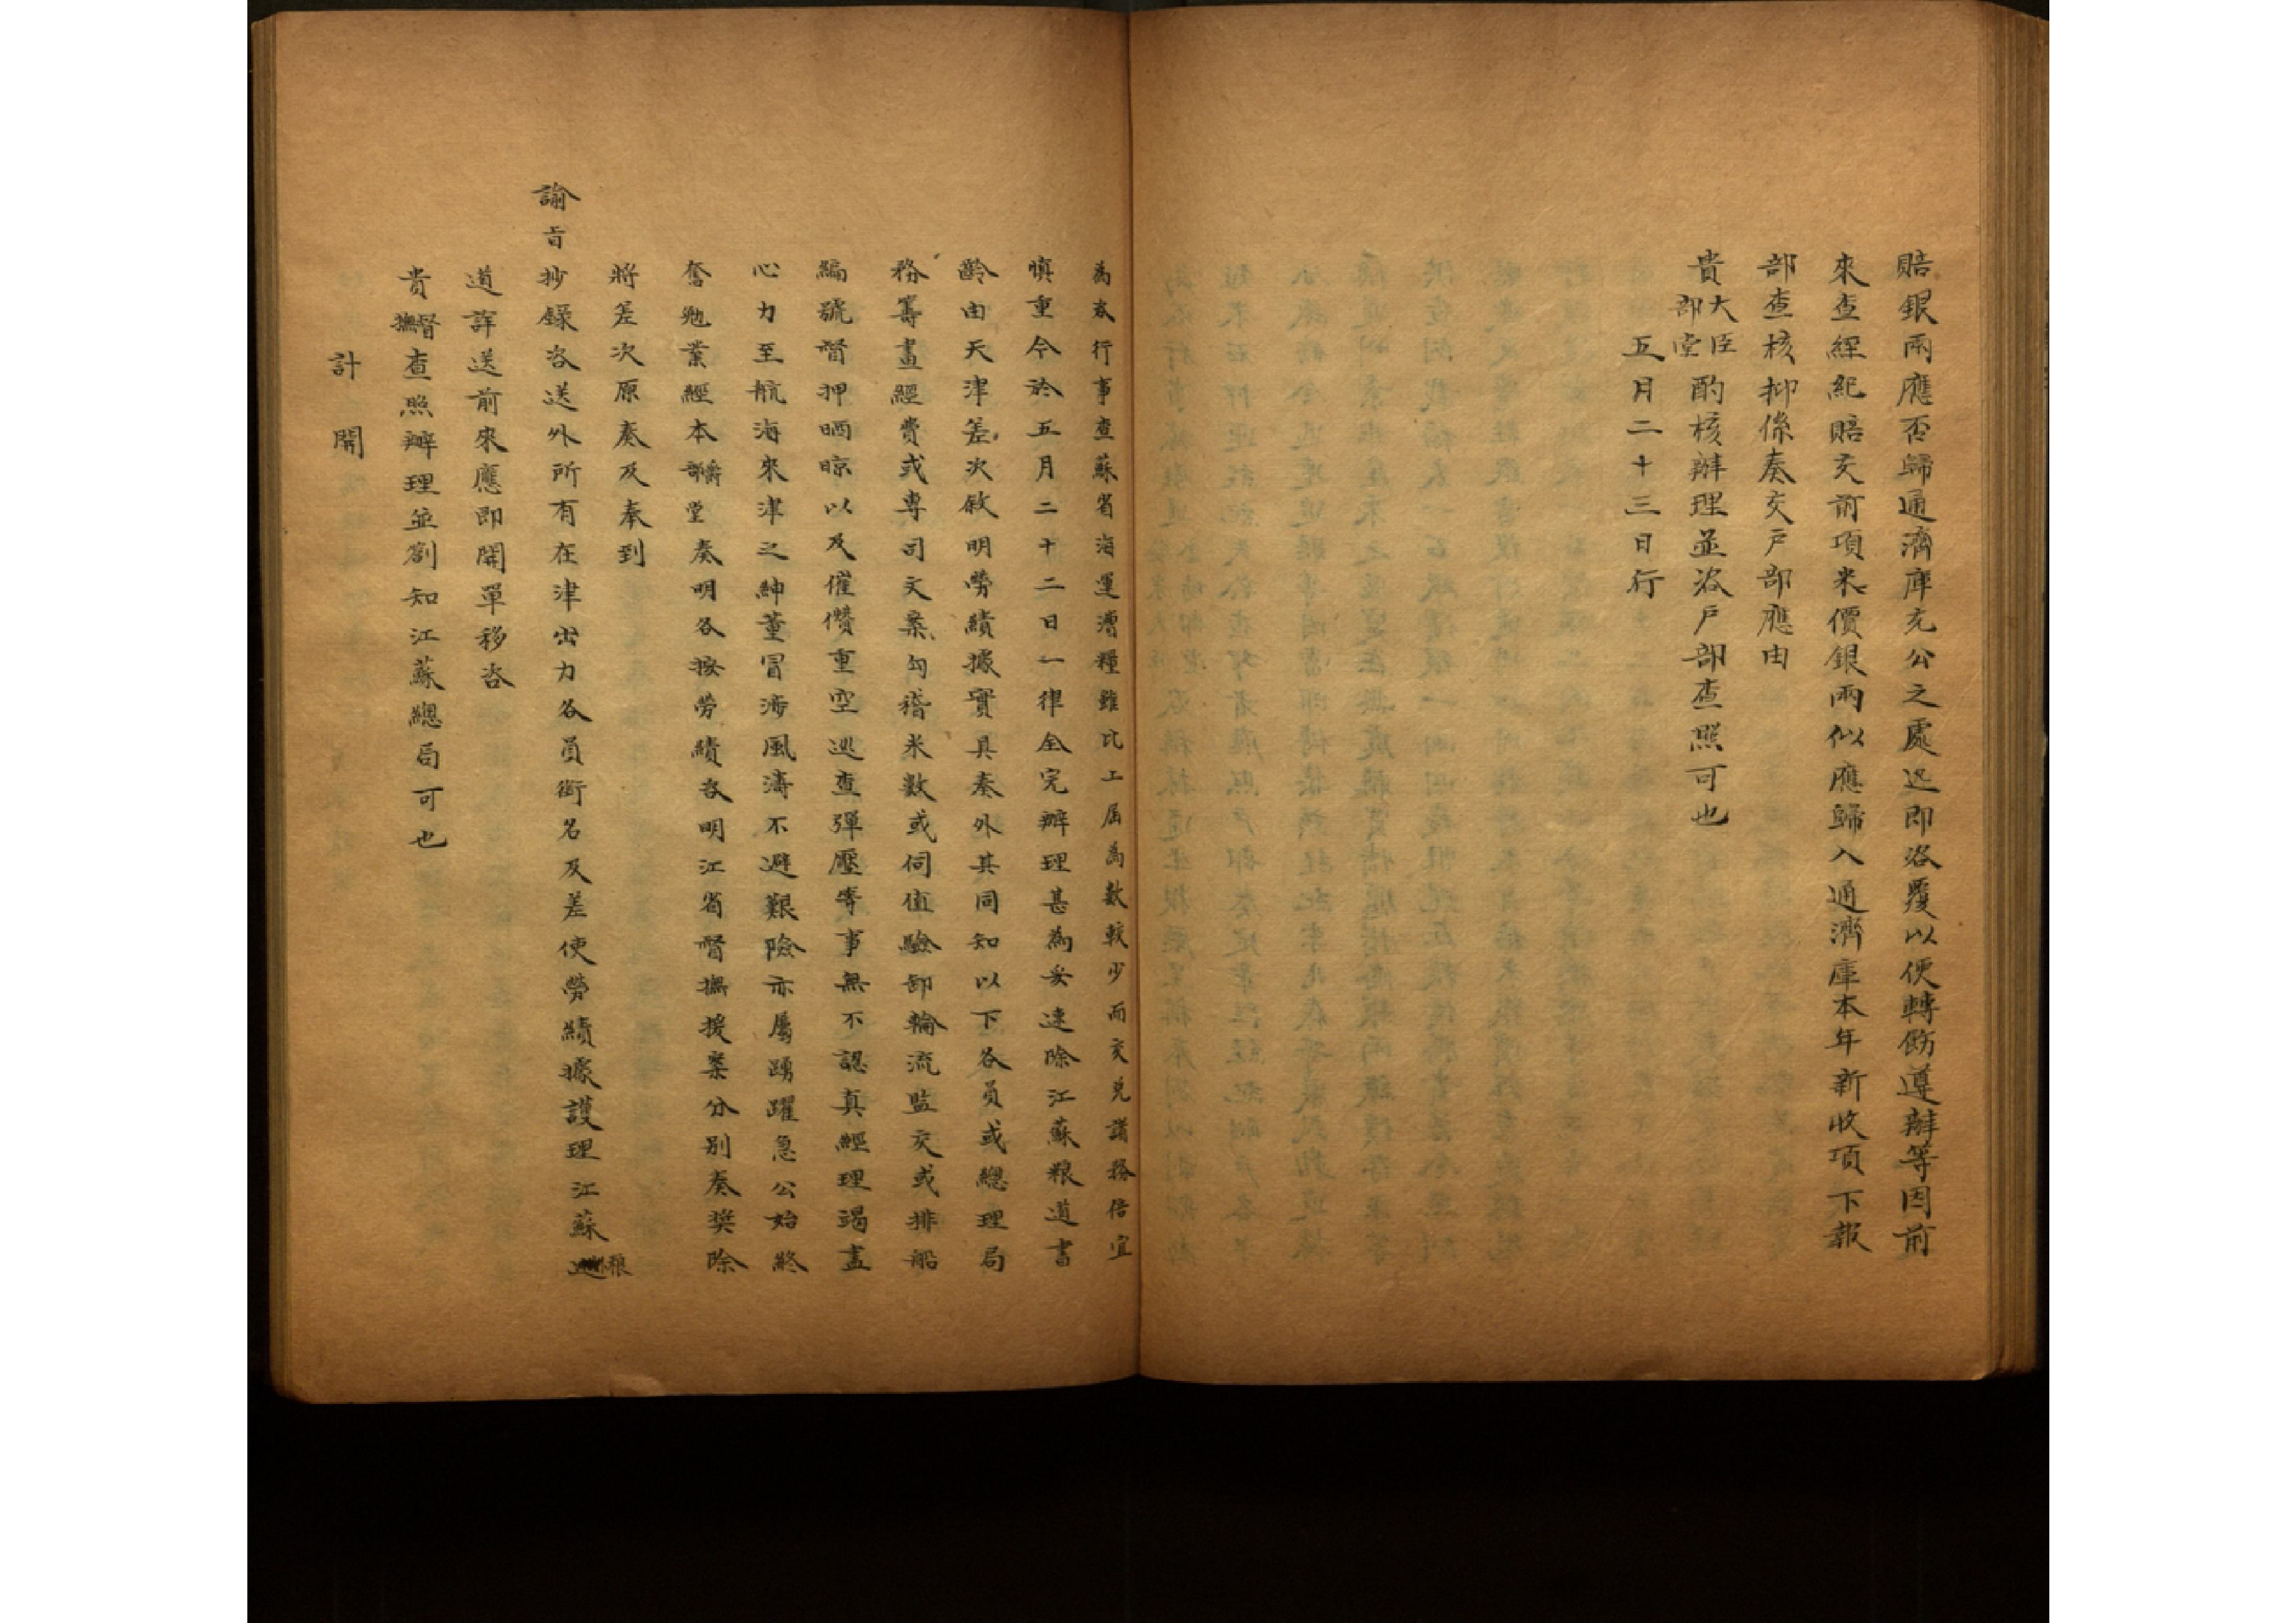 賠銀兩應否歸通濟庫充公之處迅即咨覆以便轉飭遵辦等因前
來查經紀賠交前項米價銀兩似應歸入通濟庫本年新收項下報
部查核抑係奏交戶部應由
貴大臣部堂酌核辦理並咨戶部查照可也
五月二十三日行
為咨行事查蘇省海運漕糧雖比上屆為數較少而交兌諸務倍宜
慎重今於五月二十二日一律全完辦理甚為妥速除江蘇粮道書
齡由天津差次敘明勞績據實具奏外其同知以下各員或總理局
務籌畫經費或專司文案勾稽米數或伺值驗卸輪流監交或排船
編號督押晒晾以及催儹重空巡查彈壓等事無不認真經理竭盡
心力至航海來津之紳董冒涉風濤不避艱險亦屬踴躍急公始終
奮勉業經本部堂奏明各按勞績咨明江省督撫援案分别奏獎除
將差次原奏及奉到
諭旨抄錄咨送外所有在津出力各員銜名及差使勞績據護理江蘇粮
道詳送前來應即開單移咨
貴督撫查照辦理並劄知江蘇總局可也
計開